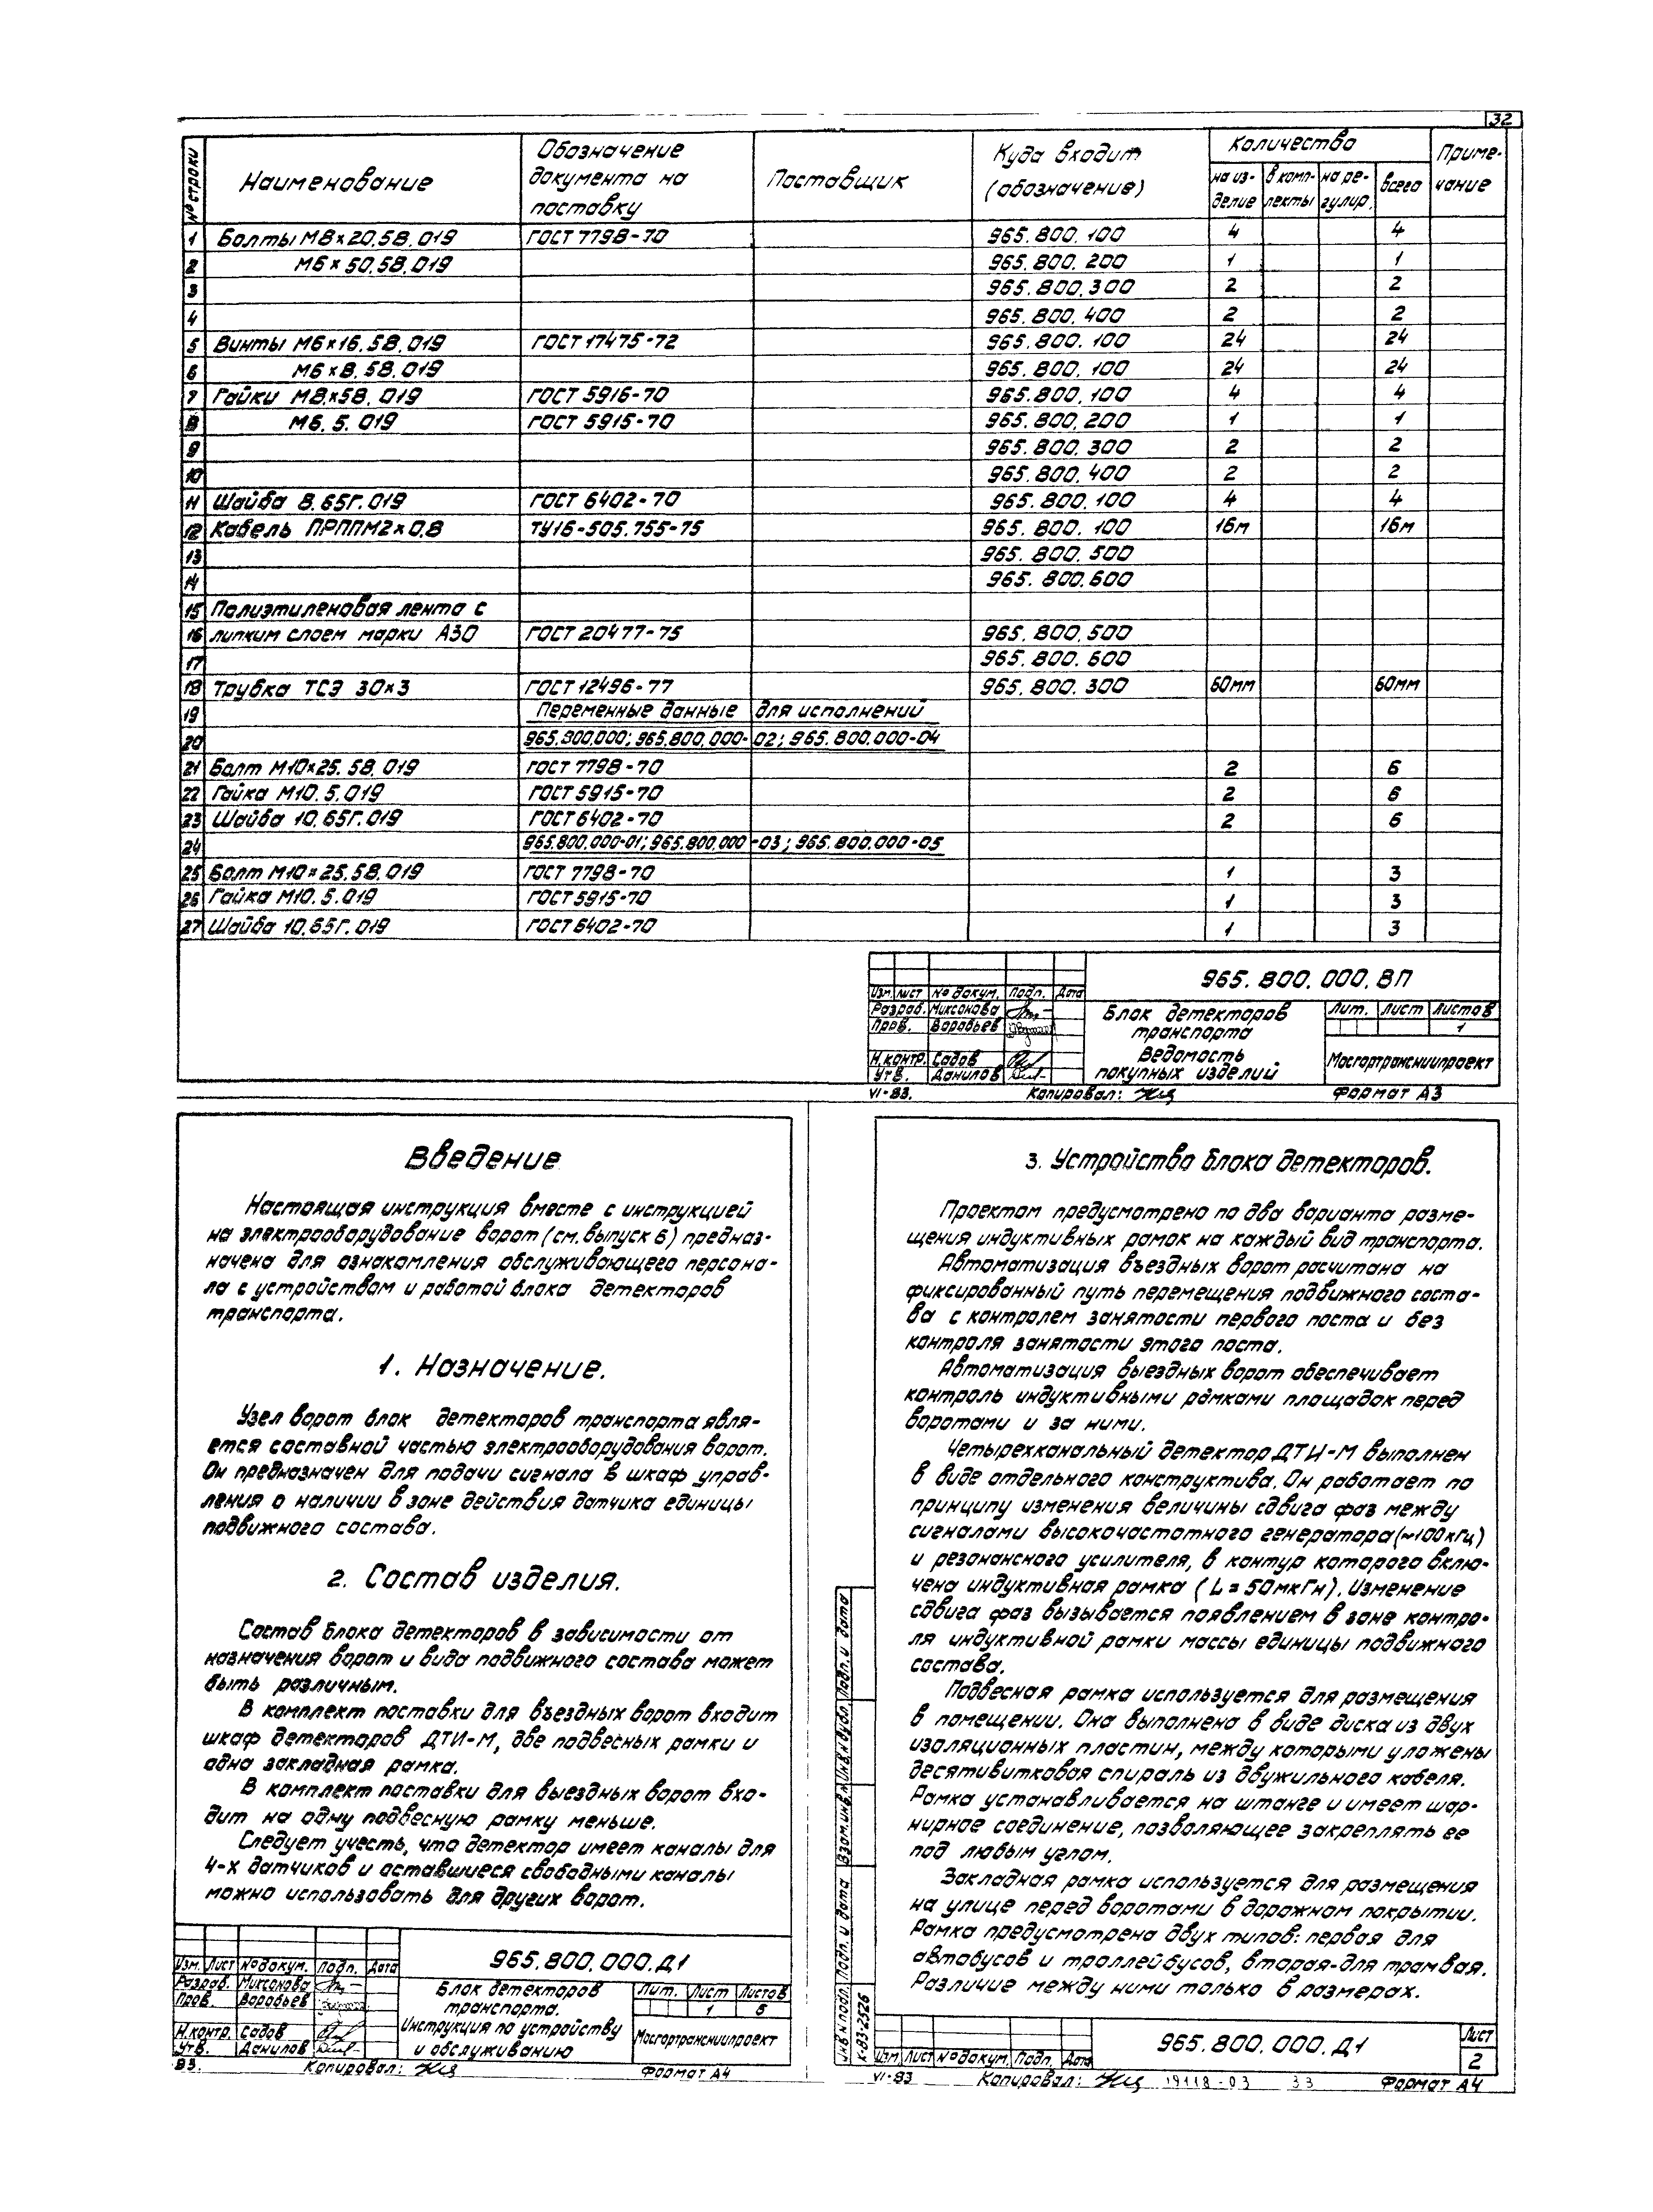 32
№ строки | Наименование | Обозначение документа на поставку | Поставщик | Куда входит (обозначение) | Количество | Приме-чание
на из-делие | в комп-лекты | на ре-гулир. | всего
1 Болты М8×20.58.019 ГОСТ 7798-70 965.800.100 4 4
2 М6×50.58.019 965.800.200 1 1
3 965.800.300 2 2
4 965.800.400 2 2
5 Винты М6×16.58.019 ГОСТ 17475-72 965.800.100 24 24
6 М6×8.58.019 965.800.100 24 24
7 Гайки М8×58.019 ГОСТ 5916-70 965.800.100 4 4
8 М6.5.019 ГОСТ 5915-70 965.800.200 1 1
9 965.800.300 2 2
10 965.800.400 2 2
11 Шайба 8.65Г.019 ГОСТ 6402-70 965.800.100 4 4
12 Кабель ПРППМ2×0,8 ТУ16-505.755-75 965.800.100 16м 16м
13 965.800.500
14 965.800.600
15 Полиэтиленовая лента с
16 липким слоем марки А30 ГОСТ 20477-75 965.800.500
17 965.800.600
18 Трубка ТСЭ 30×3 ГОСТ 12496-77 965.800.300 60мм 60мм
19 Переменные данные для исполнений
20 965.900.000; 965.800.000-02; 965.800.000-04
21 Болт М10×25.58.019 ГОСТ 7798-70 2 6
22 Гайка М10.5.019 ГОСТ 5915-70 2 6
23 Шайба 10.65Г.019 ГОСТ 6402-70 2 6
24 965.800.000-01; 965.800.000-03; 965.800.000-05
25 Болт М10×25.58.019 ГОСТ 7798-70 1 3
26 Гайка М10.5.019 ГОСТ 5915-70 1 3
27 Шайба 10.65Г.019 ГОСТ 6402-70 1 3
965.800.000.ВП
Изм. Лист № докум. Подп. Дата
Разраб. Миксонова
Пров. Воробьев
Н.контр. Садов
Утв. Данилов
Блок детекторов
транспорта
Ведомость
покупных изделий
Лит. Лист Листов
1
Мосгортрансниипроект
VI-83. Копировал: Формат А3
Введение
Настоящая инструкция вместе с инструкцией
на электрооборудование ворот (см. выпуск 6) предназ-
начена для ознакомления обслуживающего персона-
ла с устройством и работой блока детекторов
транспорта.
1. Назначение.
Узел ворот блок детекторов транспорта явля-
ется составной частью электрооборудования ворот.
Он предназначен для подачи сигнала в шкаф управ-
ления о наличии в зоне действия датчика единицы
подвижного состава.
2. Состав изделия.
Состав блока детекторов в зависимости от
назначения ворот и вида подвижного состава может
быть различным.
В комплект поставки для въездных ворот входит
шкаф детекторов ДТИ-М, две подвесных рамки и
одна закладная рамка.
В комплект поставки для выездных ворот вхо-
дит на одну подвесную рамку меньше.
Следует учесть, что детектор имеет каналы для
4-х датчиков и оставшиеся свободными каналы
можно использовать для других ворот.
965.800.000.Д1
Изм. Лист № докум. Подп. Дата
Разраб. Миксонова
Пров. Воробьев
Н.контр. Садов
Утв. Данилов
Блок детекторов
транспорта.
Инструкция по устройству
и обслуживанию
Лит. Лист Листов
1 5
Мосгортрансниипроект
83. Копировал: Формат А4
3. Устройство блока детекторов.
Проектом предусмотрено по два варианта разме-
щения индуктивных рамок на каждый вид транспорта.
Автоматизация въездных ворот расчитана на
фиксированный путь перемещения подвижного соста-
ва с контролем занятости первого поста и без
контроля занятости этого поста.
Автоматизация выездных ворот обеспечивает
контроль индуктивными рамками площадок перед
воротами и за ними.
Четырехканальный детектор ДТИ-М выполнен
в виде отдельного конструктива. Он работает по
принципу изменения величины сдвига фаз между
сигналами высокочастотного генератора (~100кГц)
и резонансного усилителя, в контур которого вклю-
чена индуктивная рамка (L = 50мкГн). Изменение
сдвига фаз вызывается появлением в зоне контро-
ля индуктивной рамки массы единицы подвижного
состава.
Подвесная рамка используется для размещения
в помещении. Она выполнена в виде диска из двух
изоляционных пластин, между которыми уложены
десятивитковая спираль из двужильного кабеля.
Рамка устанавливается на штанге и имеет шар-
нирное соединение, позволяющее закреплять ее
под любым углом.
Закладная рамка используется для размещения
на улице перед воротами в дорожном покрытии.
Рамка предусмотрена двух типов: первая для
автобусов и троллейбусов, вторая-для трамвая.
Различие между ними только в размерах.
Инв.№ подл. Подп. и дата Взам.инв.№ Инв.№ дубл. Подп. и дата
К-83-2526
Изм. Лист № докум. Подп. Дата
965.800.000.Д1
Лист
2
VI-83 Копировал: 19118-03 33 Формат А4